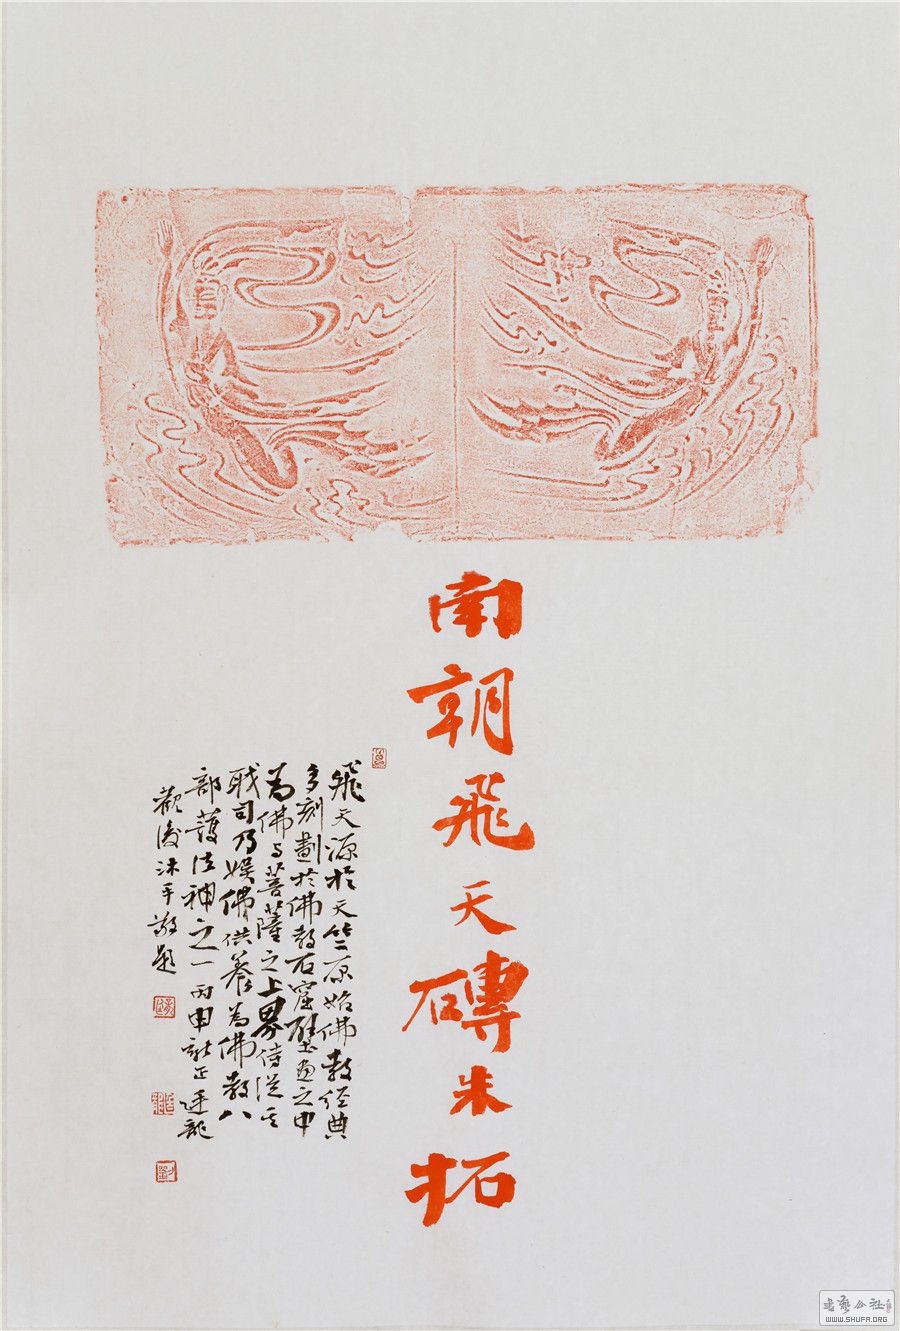 南朝飛天磚朱拓
飛天源於天竺原始佛教经典
多刻劃於佛教石窟壁画之中
為佛与菩薩之上界侍従其
职司乃娱佛供养為佛教八
部護法神之一丙申新正建龍
歡後沐手敬題
書藝公社
WWW.SHUFA.ORG